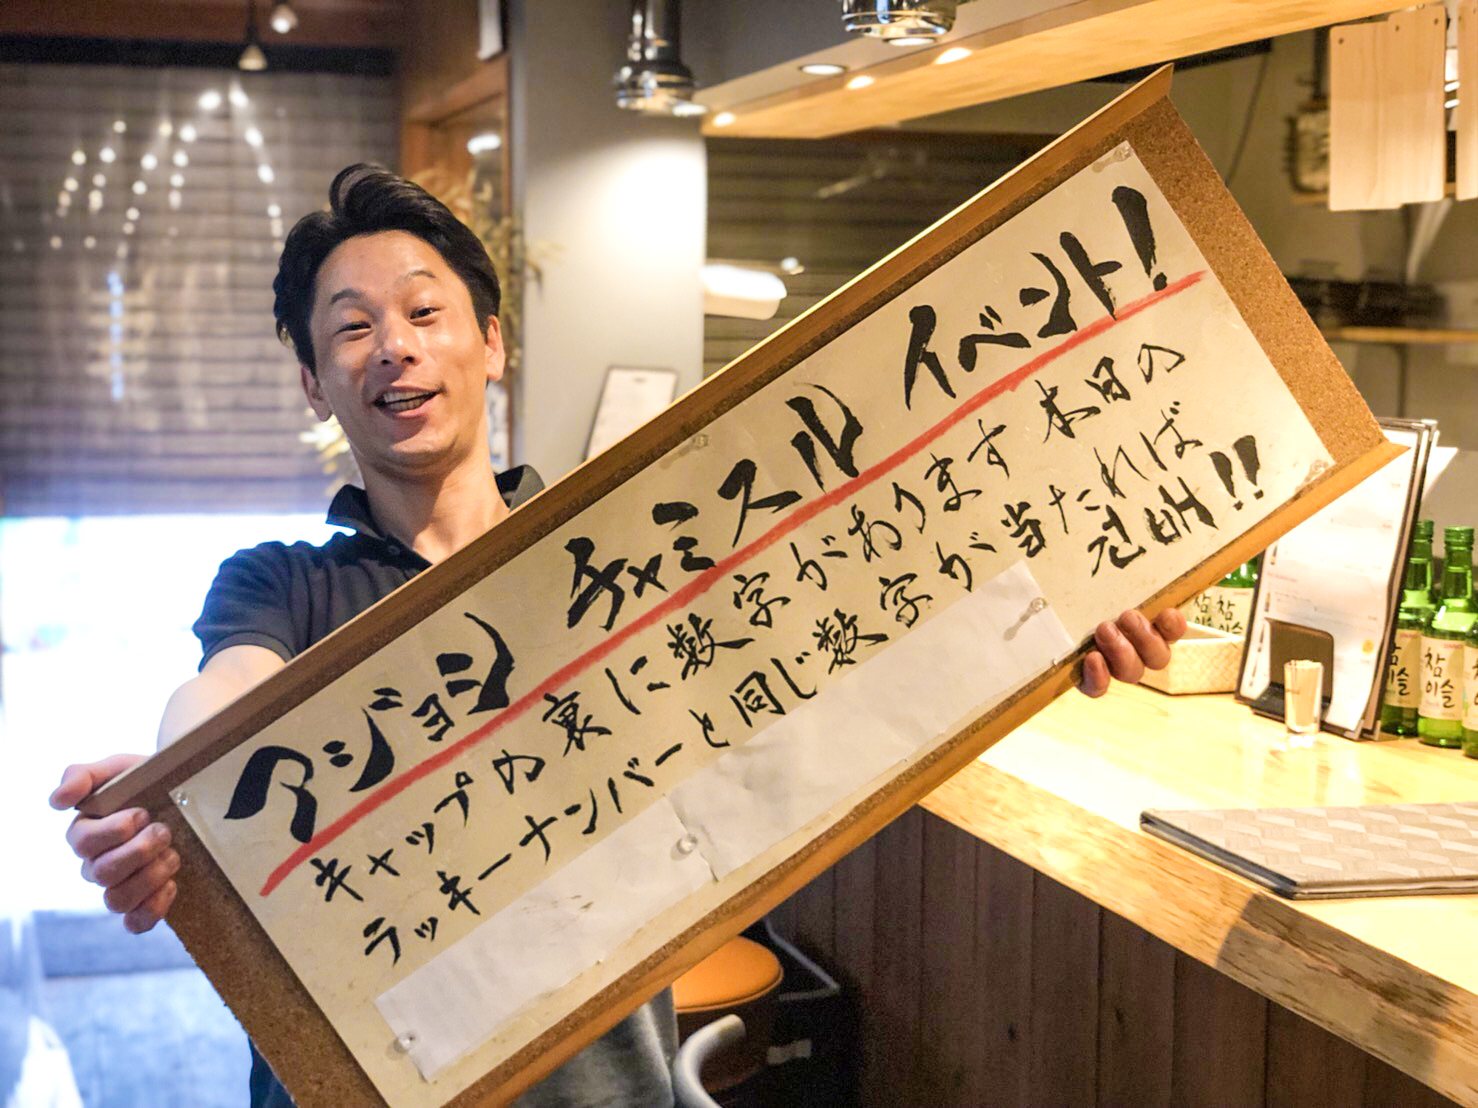 アジョシ チャミスル イベント!
キャップの裏に数字があります 本日の
ラッキーナンバーと同じ数字が当たれば
건배!!
참이슬
참이슬
참이슬
참이슬